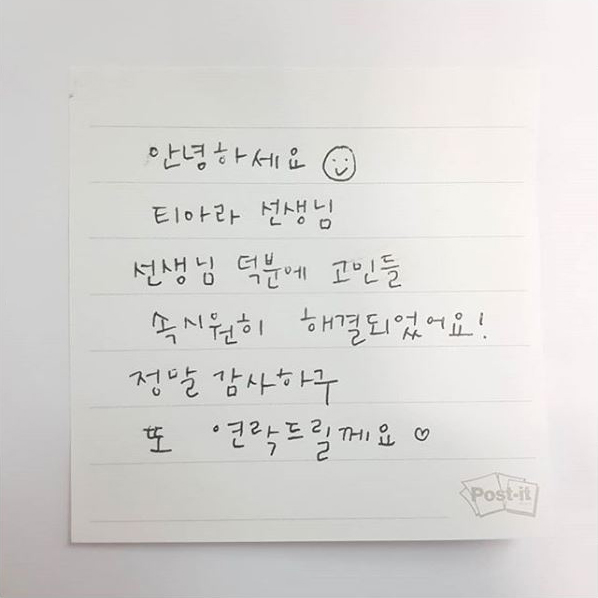 안녕하세요
티아라 선생님
선생님 덕분에 고민들
속시원히 해결되었어요!
정말 감사하구
또 연락드릴께요 ♡
Post-it